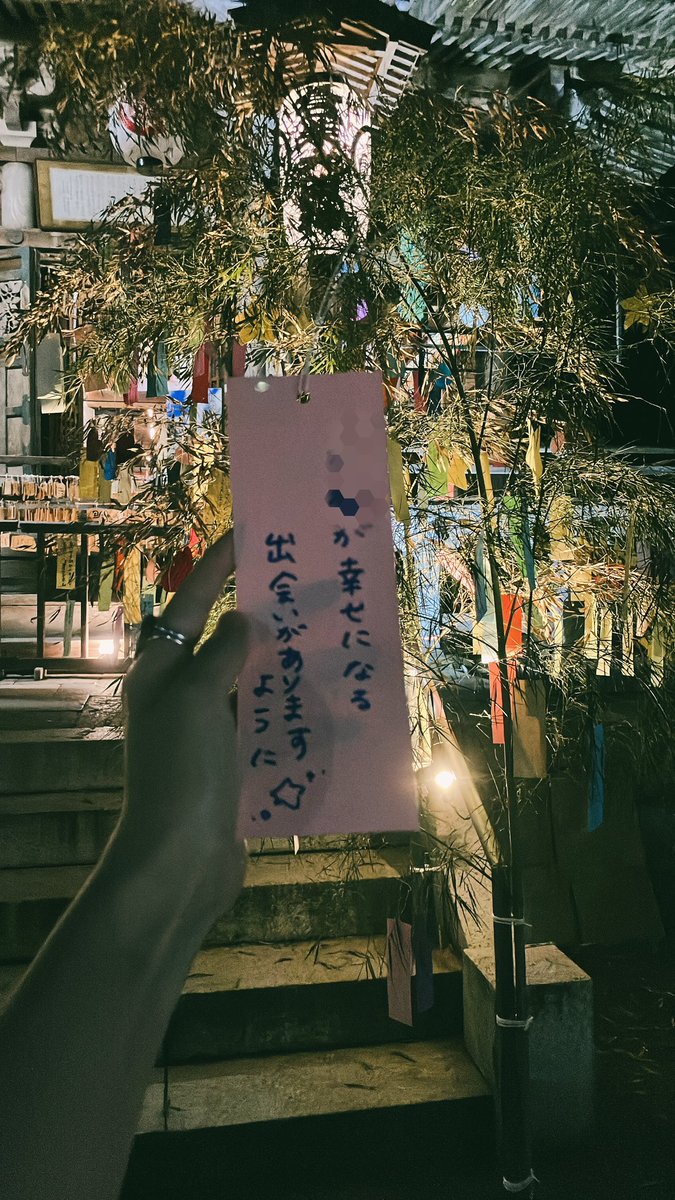 が幸せになる
出会いがあります
ように